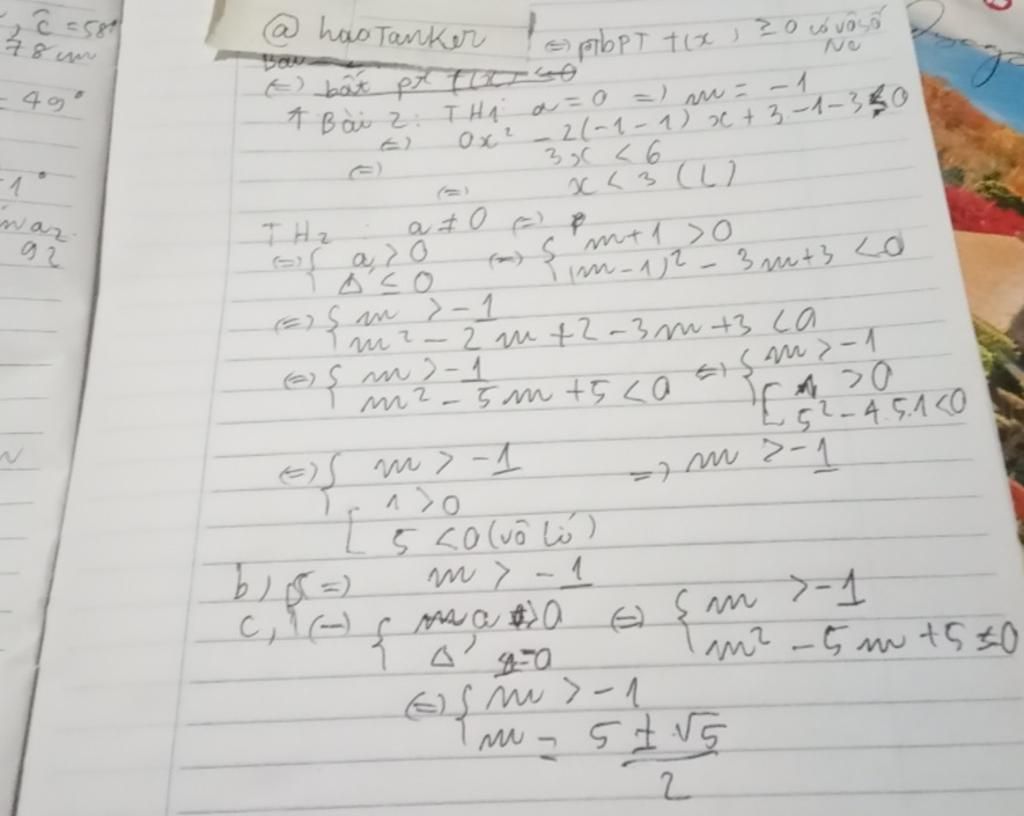 , ĉ = 58°
78 cm
= 49°
1°
92
@ haoTanker
<=> ptbPT f(x) ≥ 0 có vô số No
(=) bất pt f(x) <0
↑ Bài 2: TH1: a = 0 => m = -1
(=) 0x² - 2(-1-1)x + 3.-1-3 <0
(=) 3x < 6
(=) x < 3 (L)
TH2: a ≠ 0 (=)
(=) { a > 0 (=) { m+1 > 0
Δ ≤ 0 (m-1)² - 3m+3 < 0
(=) { m > -1
m² - 2m + 2 - 3m + 3 < 0
(=) { m > -1 (=) { m > -1
m² - 5m + 5 < 0 [ 1 > 0
5² - 4.5.1 < 0
(=) { m > -1 => m > -1
[ 1 > 0
5 < 0 (vô lí)
b, (=) m > -1
c, (=) { a > 0 (=) { m > -1
Δ' = 0 m² - 5m + 5 = 0
(=) { m > -1
m = 5 ± √5 / 2